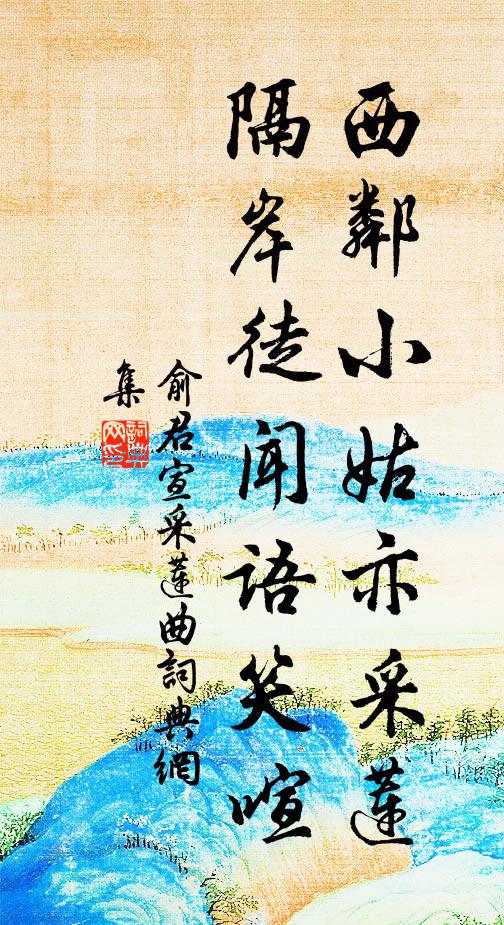 西鄰小姑亦采蓮
隔岸徒聞語笑喧
俞君宣采蓮曲詞典網
集